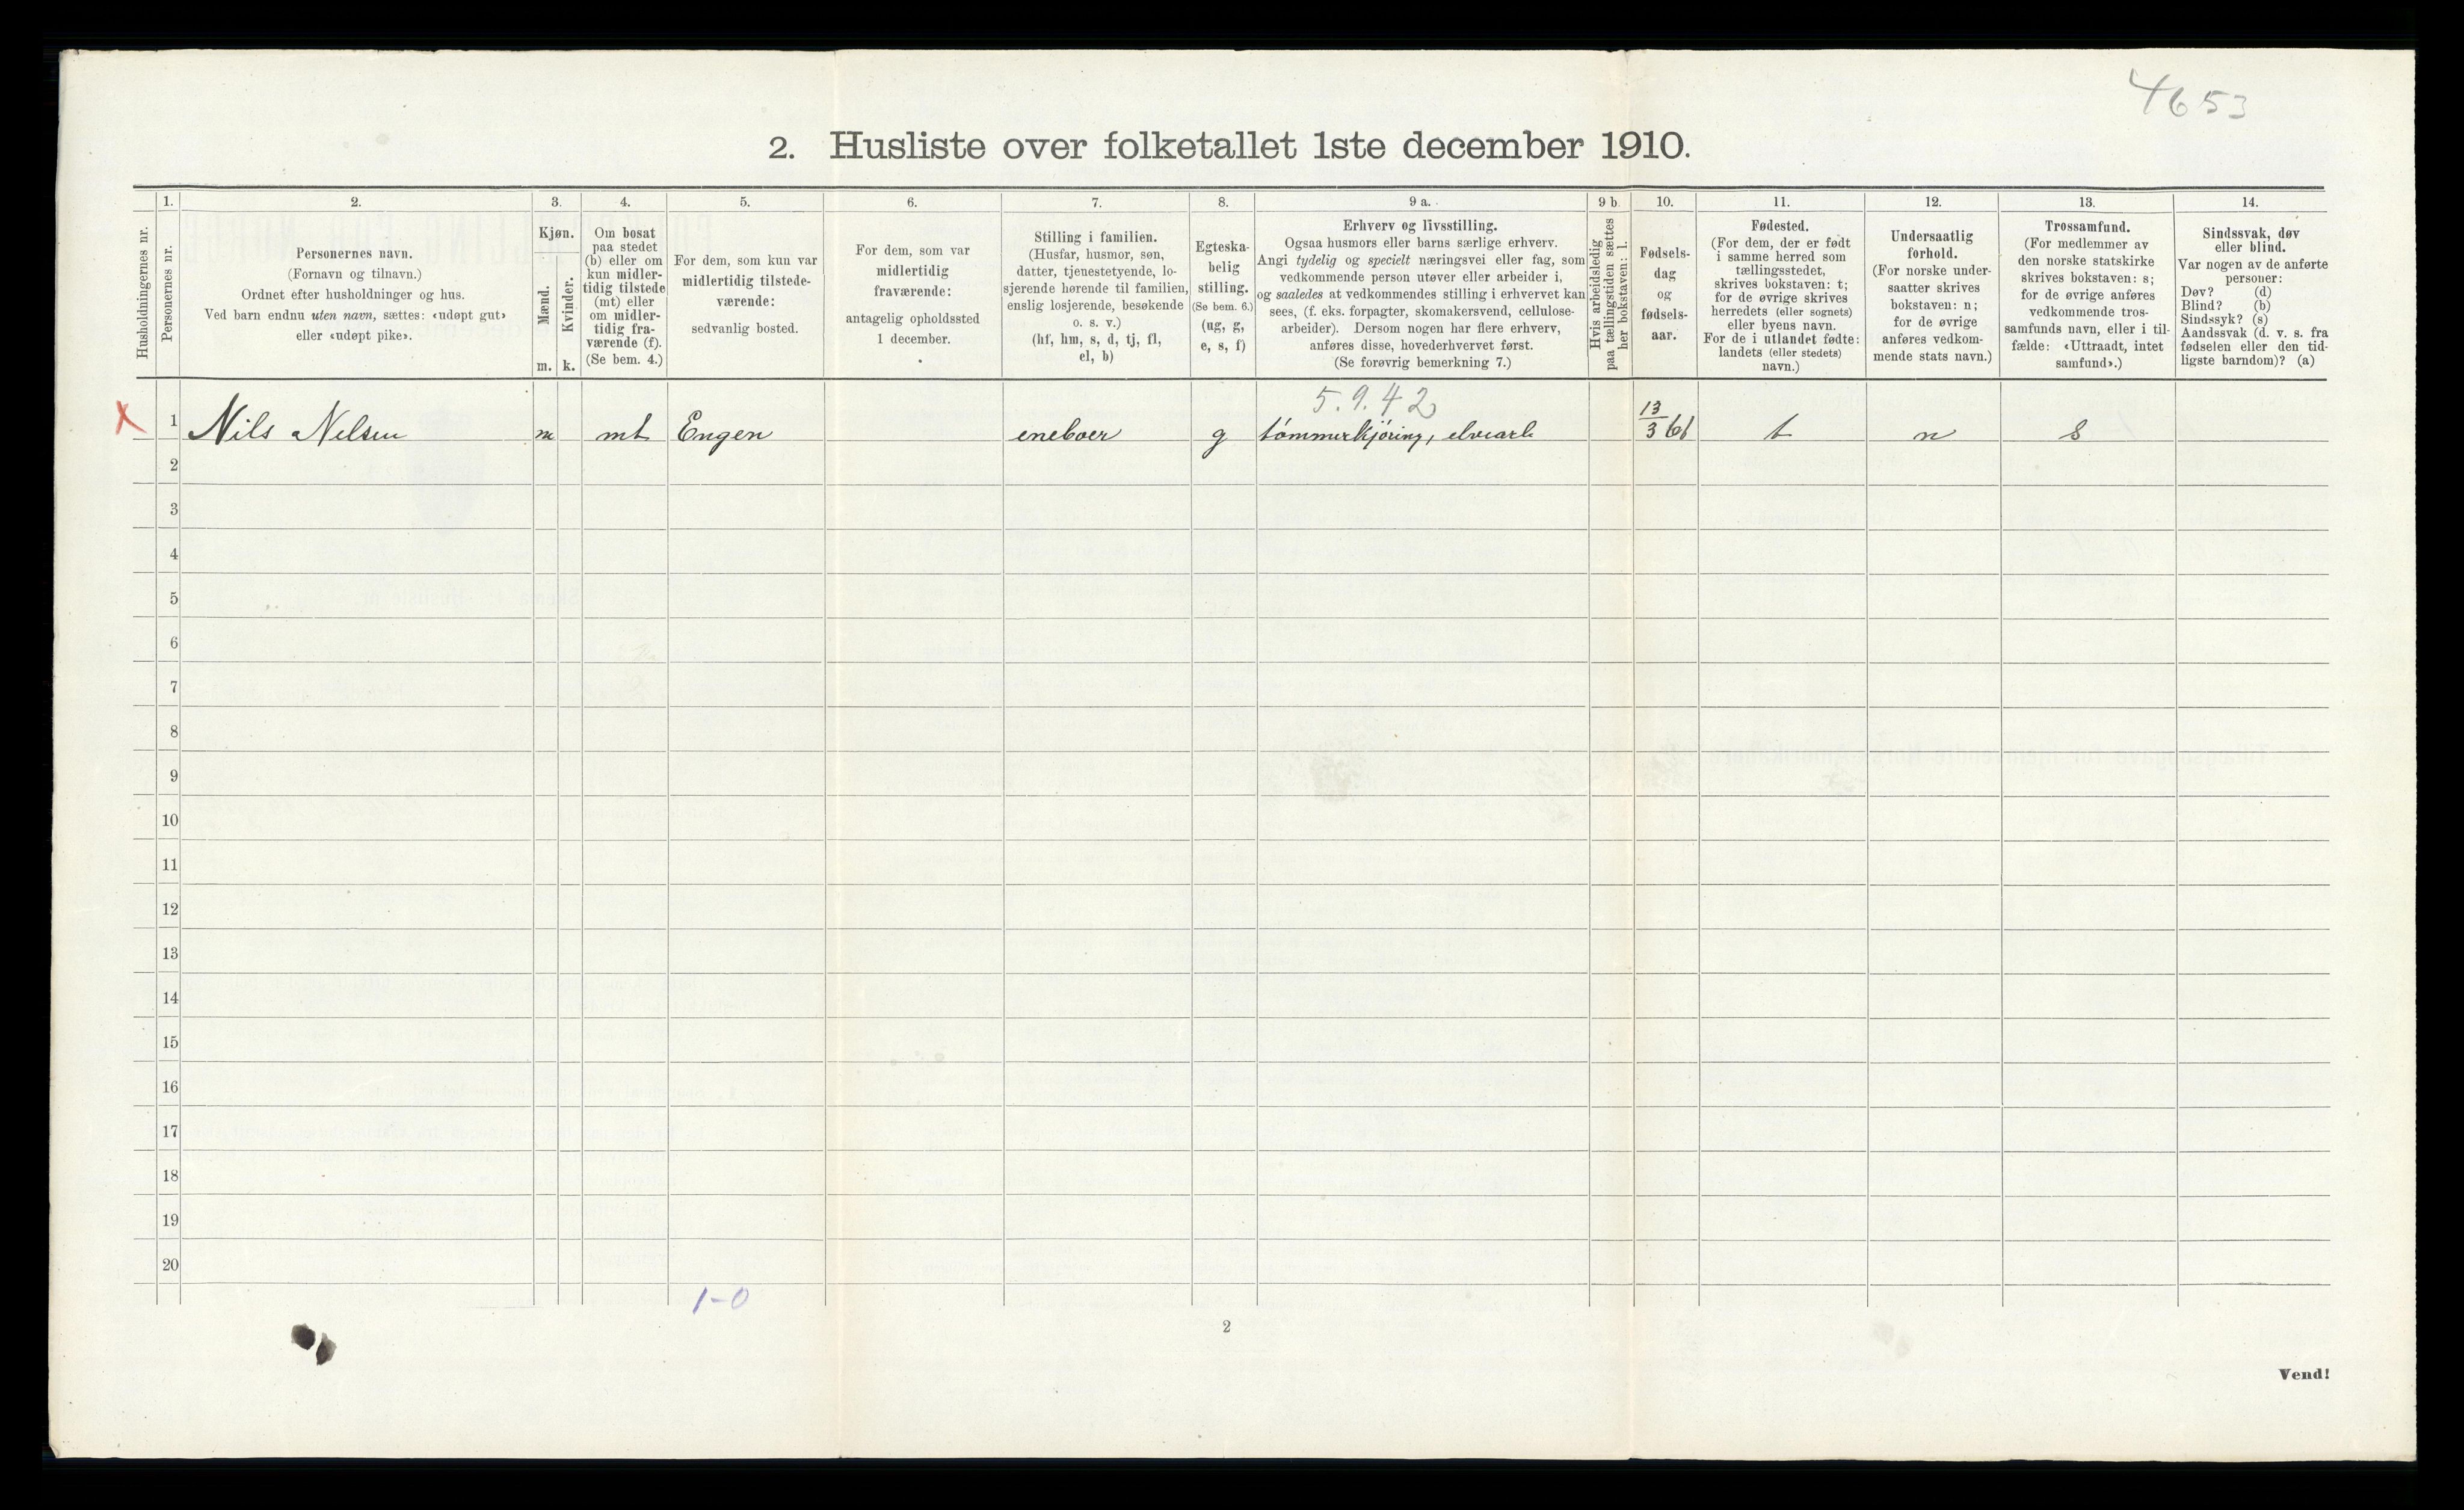 4653
2. Husliste over folketallet 1ste december 1910.
Husholdningernes nr.
1.
Personernes nr.
2.
Personernes navn.
(Fornavn og tilnavn.)
Ordnet efter husholdninger og hus.
Ved barn endnu uten navn, sættes: «udøpt gut»
eller «udøpt pike».
3.
Kjøn.
Mænd.
Kvinder.
m. k.
4.
Om bosat
paa stedet
(b) eller om
kun midler-
tidig tilstede
(mt) eller
om midler-
tidig fra-
værende (f).
(Se bem. 4.)
5.
For dem, som kun var
midlertidig tilstede-
værende:
sedvanlig bosted.
6.
For dem, som var
midlertidig
fraværende:
antagelig opholdssted
1 december.
7.
Stilling i familien.
(Husfar, husmor, søn,
datter, tjenestetyende, lo-
sjerende hørende til familien,
enslig losjerende, besøkende
o. s. v.)
(hf, hm, s, d, tj, fl,
el, b)
8.
Egteska-
belig
stilling.
(Se bem. 6.)
(ug, g,
e, s, f)
9 a.
Erhverv og livsstilling.
Ogsaa husmors eller barns særlige erhverv.
Angi tydelig og specielt næringsvei eller fag, som
vedkommende person utøver eller arbeider i,
og saaledes at vedkommendes stilling i erhvervet kan
sees, (f. eks. forpagter, skomakersvend, cellulose-
arbeider). Dersom nogen har flere erhverv,
anføres disse, hovederhvervet først.
(Se forøvrig bemerkning 7.)
9 b
Hvis arbeidsledig
paa tællingstiden sættes
her bokstaven: l.
10.
Fødsels-
dag
og
fødsels-
aar.
11.
Fødested.
(For dem, der er født
i samme herred som
tællingsstedet,
skrives bokstaven: t;
for de øvrige skrives
herredets (eller sognets)
eller byens navn.
For de i utlandet fødte:
landets (eller stedets)
navn.)
12.
Undersaatlig
forhold.
(For norske under-
saatter skrives
bokstaven: n;
for de øvrige
anføres vedkom-
mende stats navn.)
13.
Trossamfund.
(For medlemmer av
den norske statskirke
skrives bokstaven: s;
for de øvrige anføres
vedkommende tros-
samfunds navn, eller i til-
fælde: «Uttraadt, intet
samfund».)
14.
Sindssvak, døv
eller blind.
Var nogen av de anførte
personer:
Døv? (d)
Blind? (b)
Sindssyk? (s)
Aandssvak (d. v. s. fra
fødselen eller den tid-
ligste barndom)? (a)
5.9.42
X 1 Nils Nelsen m mt Engen eneboer g tømmerkjøring, elvearb 13/3 61 t n s
2
3
4
5
6
7
8
9
10
11
12
13
14
15
16
17
18
19
20
1-0
2
Vend!